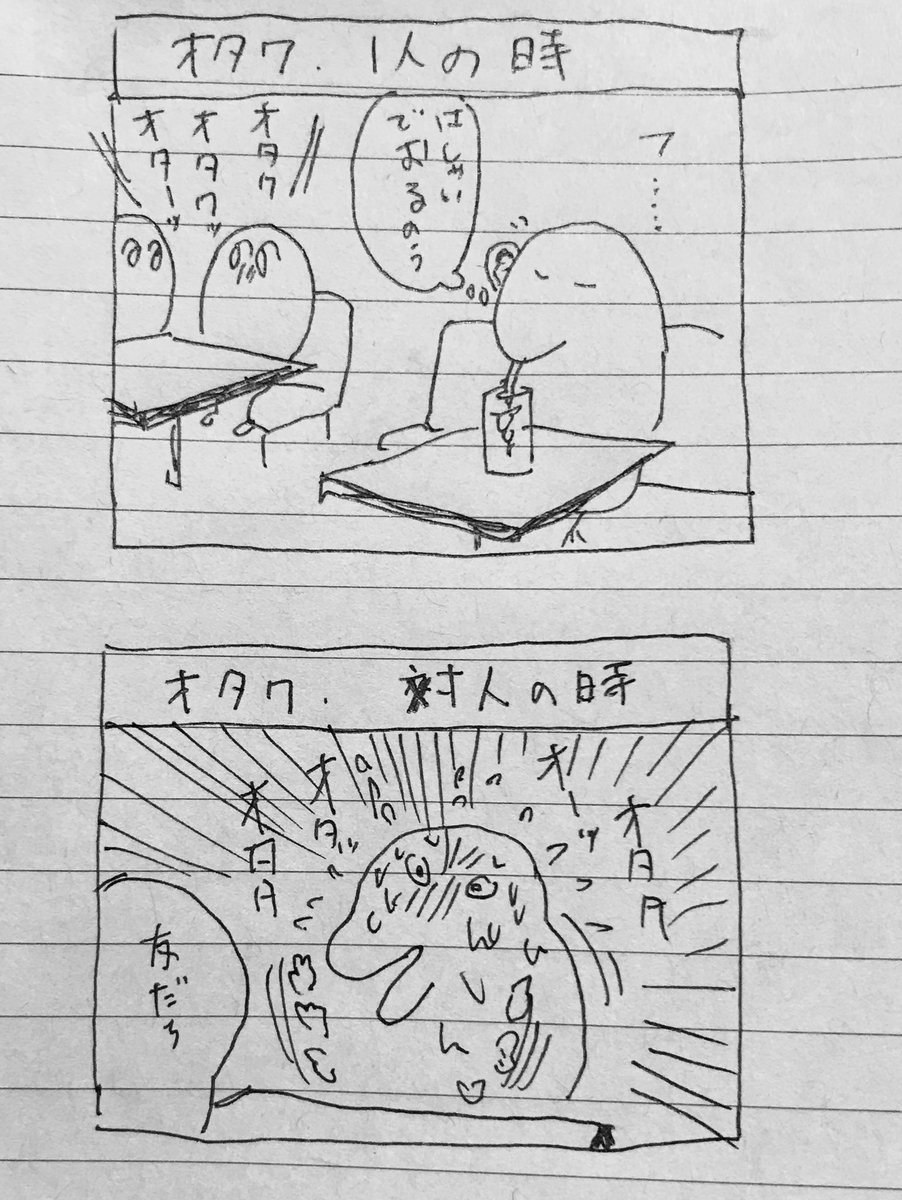 オタク. 1人の時
フ……
はしゃい
でおるのぅ
オタク
オタクッ
オターッ
オタク. 対人の時
オタタ
オーッ
オタッ
オタタ
友だち